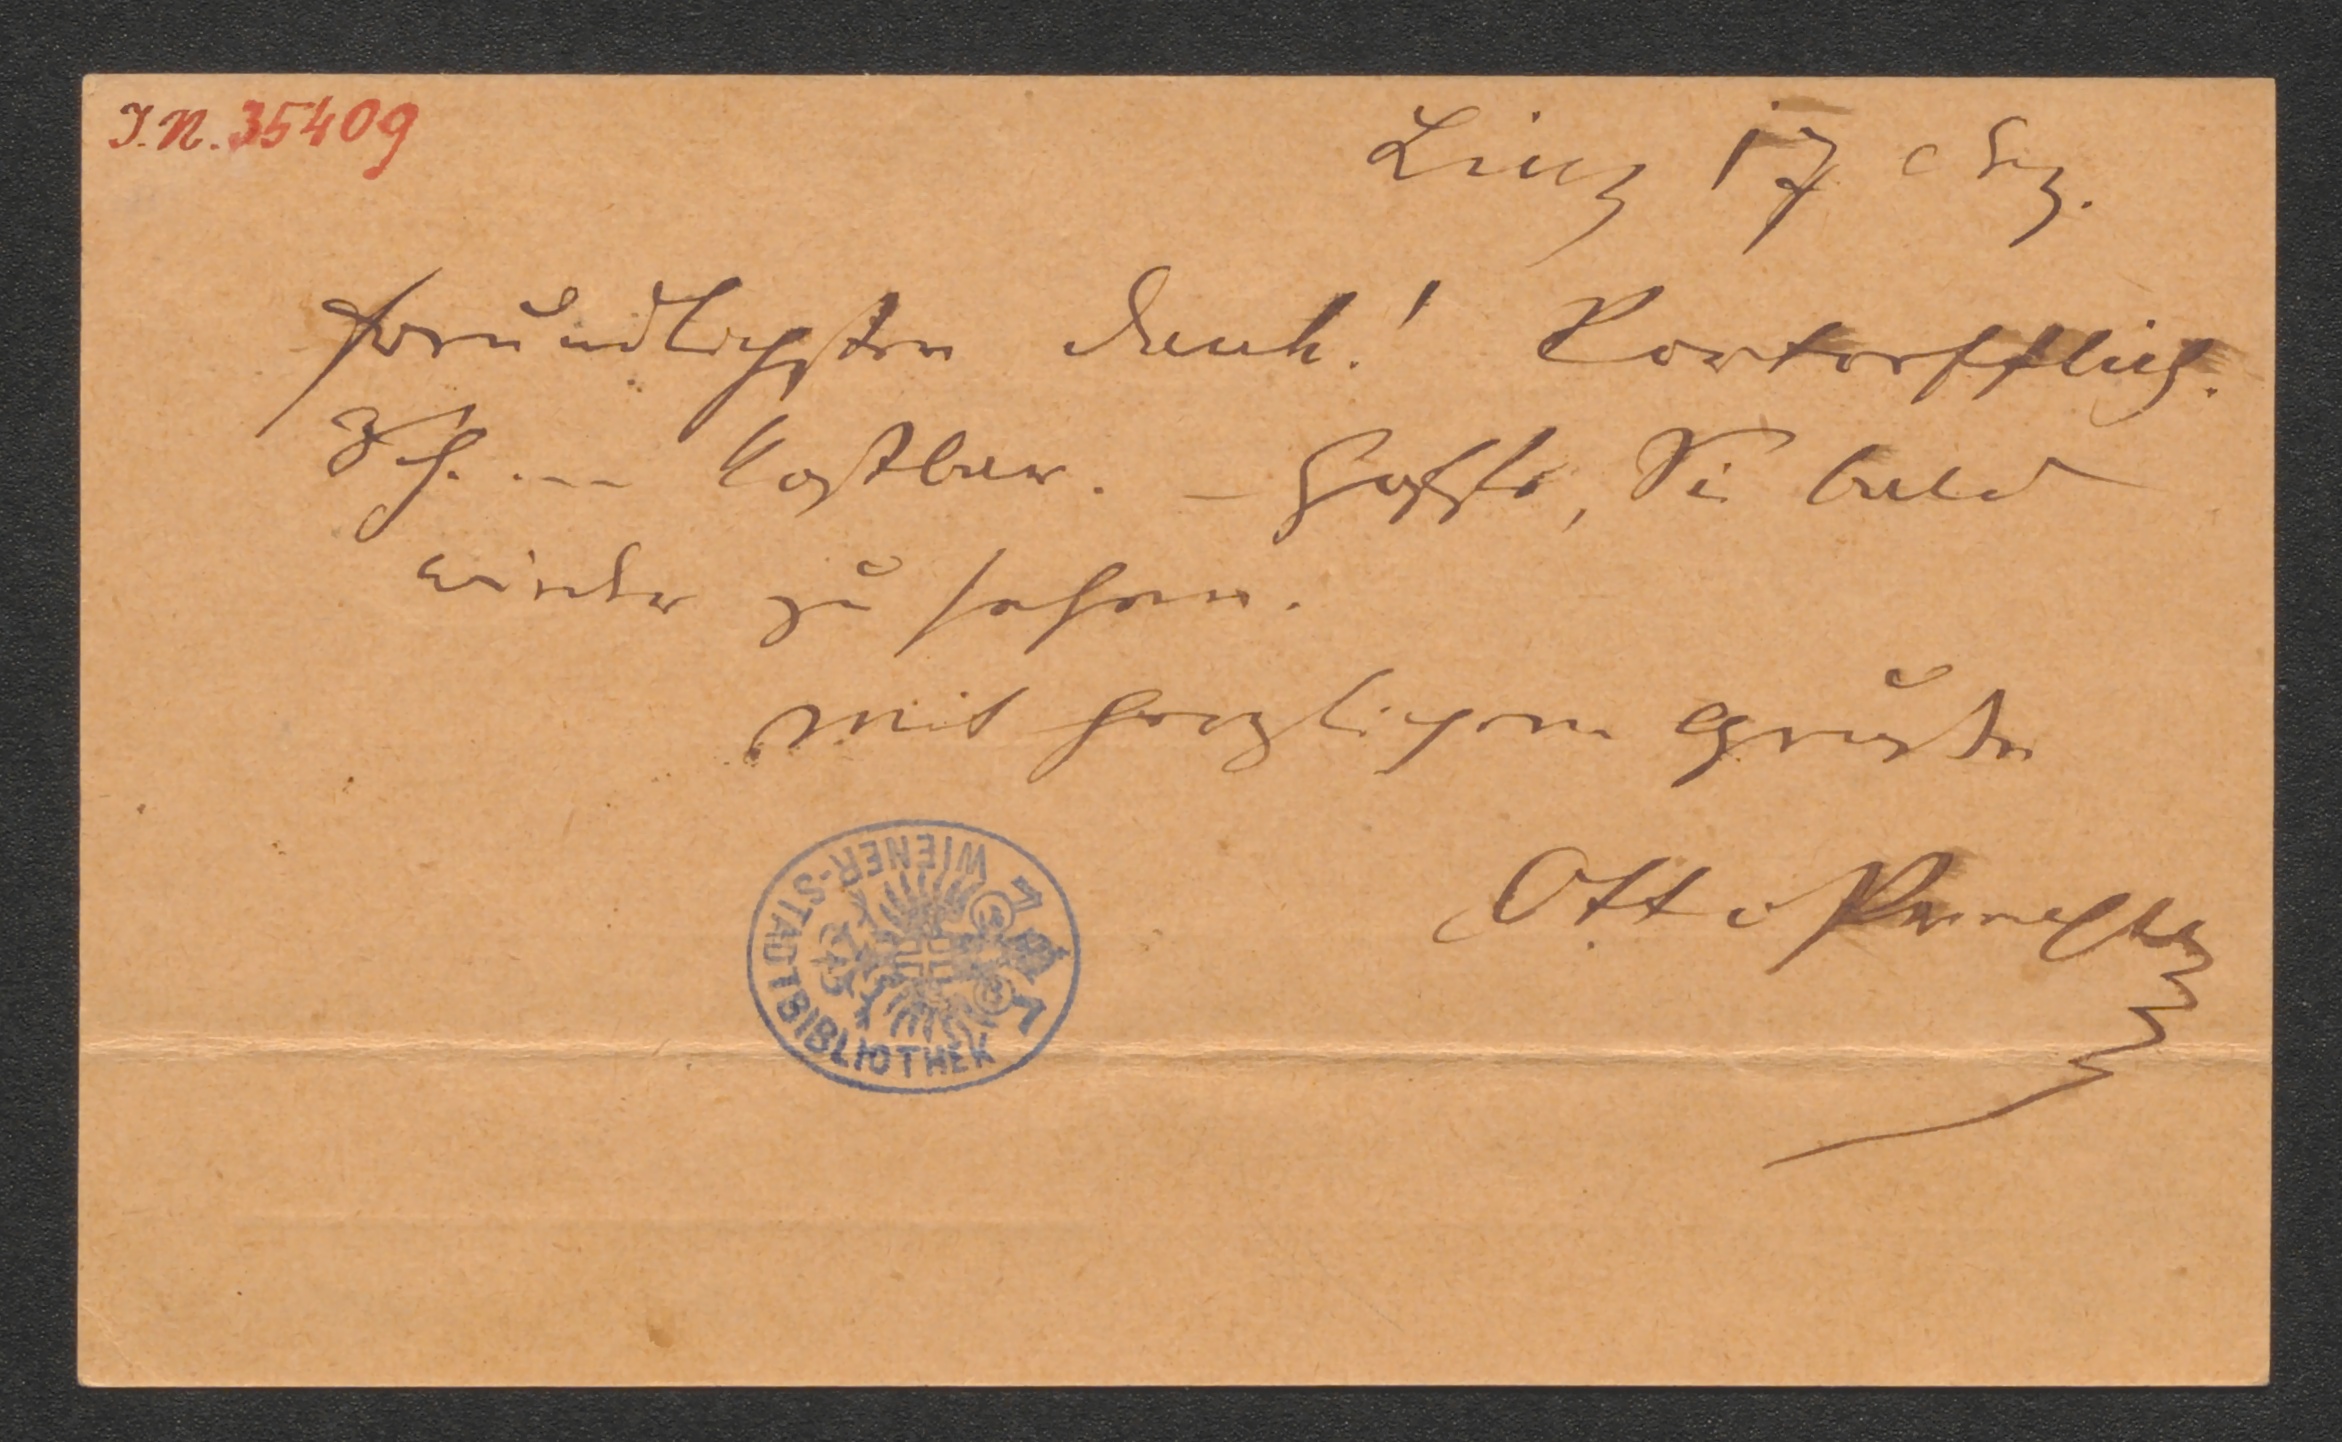 I.N. 35409
Linz 17 Dez.
freundlichsten Dank!
kostbar. – Hoffe, Sie bald
wieder zu sehen.
Mit herzlichem Gruße
Otto
WIENER-STADTBIBLIOTHEK